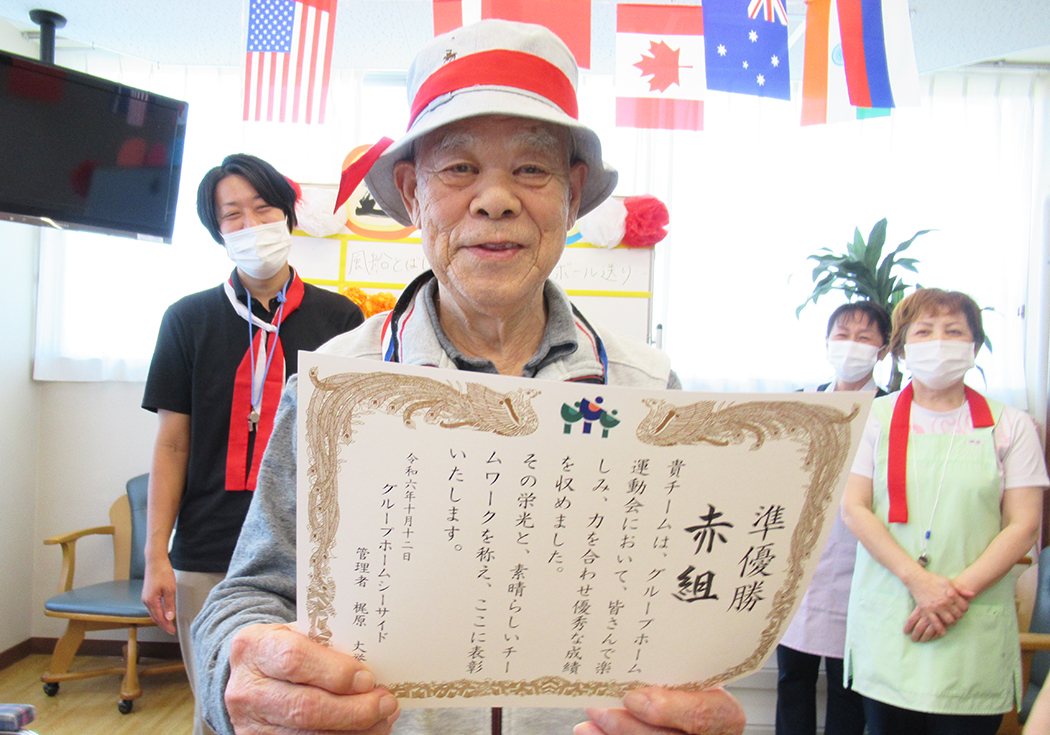 風船とは
ボール送り
準優勝
赤組
貴チームは、グループホーム
運動会において、皆さんで楽
しみ、力を合わせ優秀な成績
を収めました。
その栄光と、素晴らしいチー
ムワークを称え、ここに表彰
いたします。
令和六年十月十二日
グループホームシーサイド
管理者 梶原 大